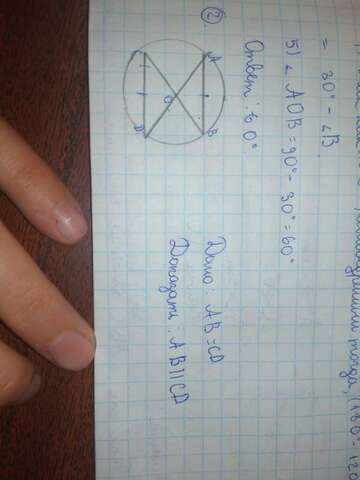 = 30° - ∠B
5) ∠ AOB = 90° - 30° = 60°
Ответ: 60°
2
A
B
O
D
Дано: AB = CD
Доказать: AB || CD